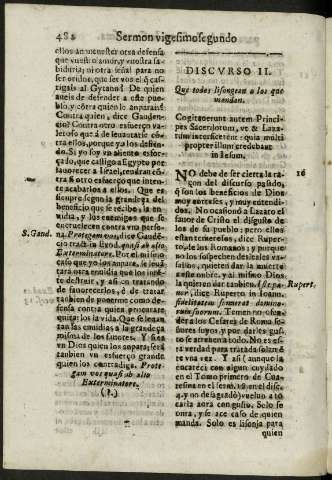 482
Sermon vigesimosegundo
ellos an menester otra defensa
que vuestro amor, y vuestra sa-
biduria; ni otra señal para no
ser oridne, que ser vos el q̃ cas-
tigais al Gytano? De quien
aueis de defender a este pue-
blo, y côtra quien lo amparais?
Contra quien, dice Gauden-
cio? Contra otro esfuerço va-
leroso que a de leuantarse cõ-
tra ellos, porque yo los defien-
do. Si, yo soy vn aliento esfor-
çado, que castigo a Egypto por
fauorecer a Israel, tendran cõ-
tra si otro esfuerço que inten-
te acabarlos a ellos. Que es
siempre segun la grandeça del
beneficio que se recibe, la en-
uidia, y los enemigos que se
encruelecen contra vna perso-
S. Gaud.
na. Protegam vos, dice Gaudé-
cio tract. in Exod. quasi ab alto
Exterminatore. Por el mismo
caso que yo los amparo, se leuã-
tará otra enuidia que los inté-
te destruir, y assi en tratando
de fauorecerlos, é de tratar
tambien de ponerme como de-
fensa contra quien procurare
quitarlos la vida. Que se leuan-
tan las enuidias a la grandeça
misma de los fauores. Y si ay
vn Dios quien los ampara, será
tambien vn esfuerço grande
quien los contradiga. Prote-
gam vos quasi ab alto
Exterminatore.
(?)
DISCVRSO II.
Que todos lisongean a los que
mandan.
Cogitauerunt autem Princi-
pes Sacerdotum, vt & Laza-
rum interficerent: quia multi
propter illum credebant
in Iesum.
16
NO debe de ser cierta la ra-
çon del discurso pasado,
q̃ son los beneficios de Dios
muy corteses, y muy entendi-
dos. No ocasionó a Lazaro el
fauor de Cristo el disgusto de
los de su pueblo; pero ellos
están temerosos, dice Ruper-
to, de los Romanos; y porque
no los sospechen desleales va-
sallos, quieren dar la muerte
a este ombre, y al mismo Dios
la quieren dar tambien.
Rupert.
mo, dice Ruperto in Ioann.
fidelitatem simurent domina-
tioni suorum. Temen no, ofen-
der a los Cesares de Roma se-
ñores suyos, y por darles gus-
to se atreuen a todo. No es es-
ta verdad para tratada sola mē-
te vna vez. Y assi (aunque la
encareci con algun cuydado
en el Tomo primero de Cua-
resma en el serm. 12. en el disc.
4. y no desagradó) vueluo a to-
carla aora con gusto. Solo se
onra, y se ace caso de quien
manda. Solo es lisonja para
quien